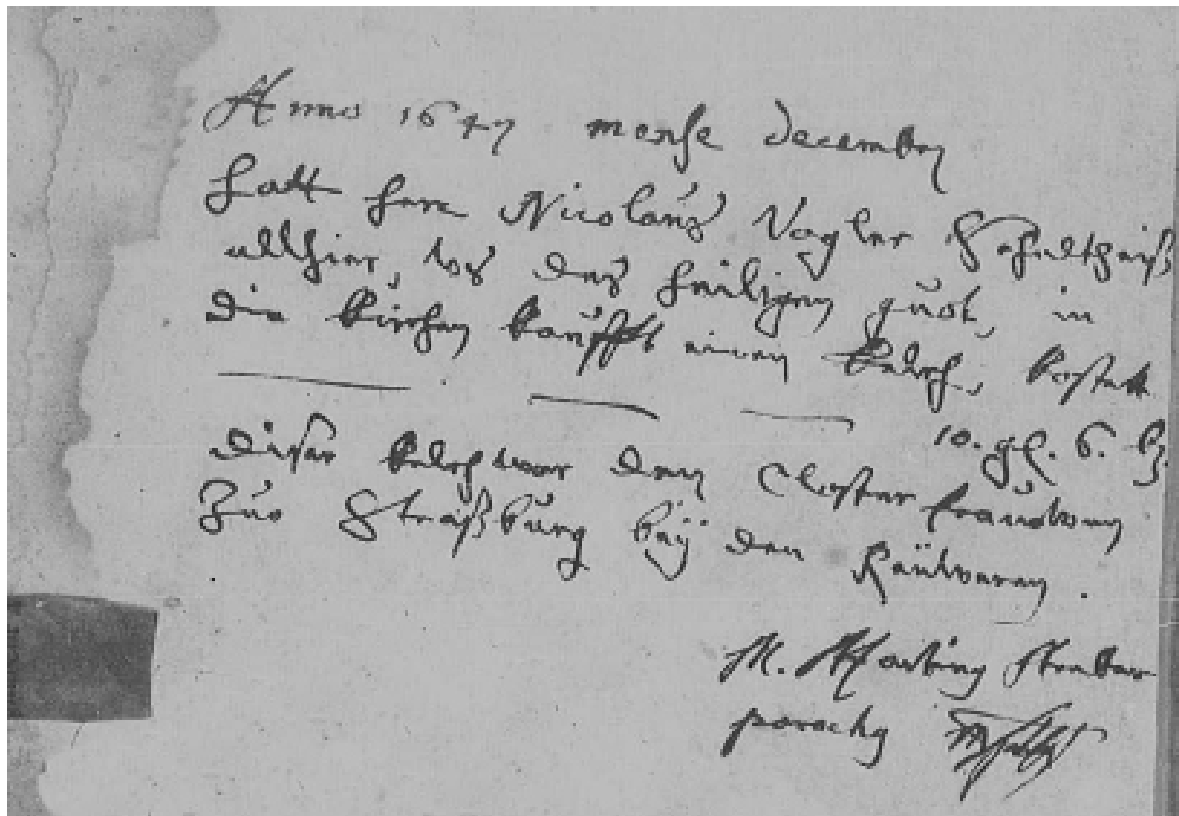 Anno 1647 mense decembri
hatt herr Nicolaus Vogler Schultheiß
allhier, vs des heiligen guot, in
die kirchen kaufft einen kelch, kostett
10. gl. 6. bz.
diser kelch war den Closterfrauwen
Zuo Straßburg bëy den Reüweren.
M. Martinus
parochus